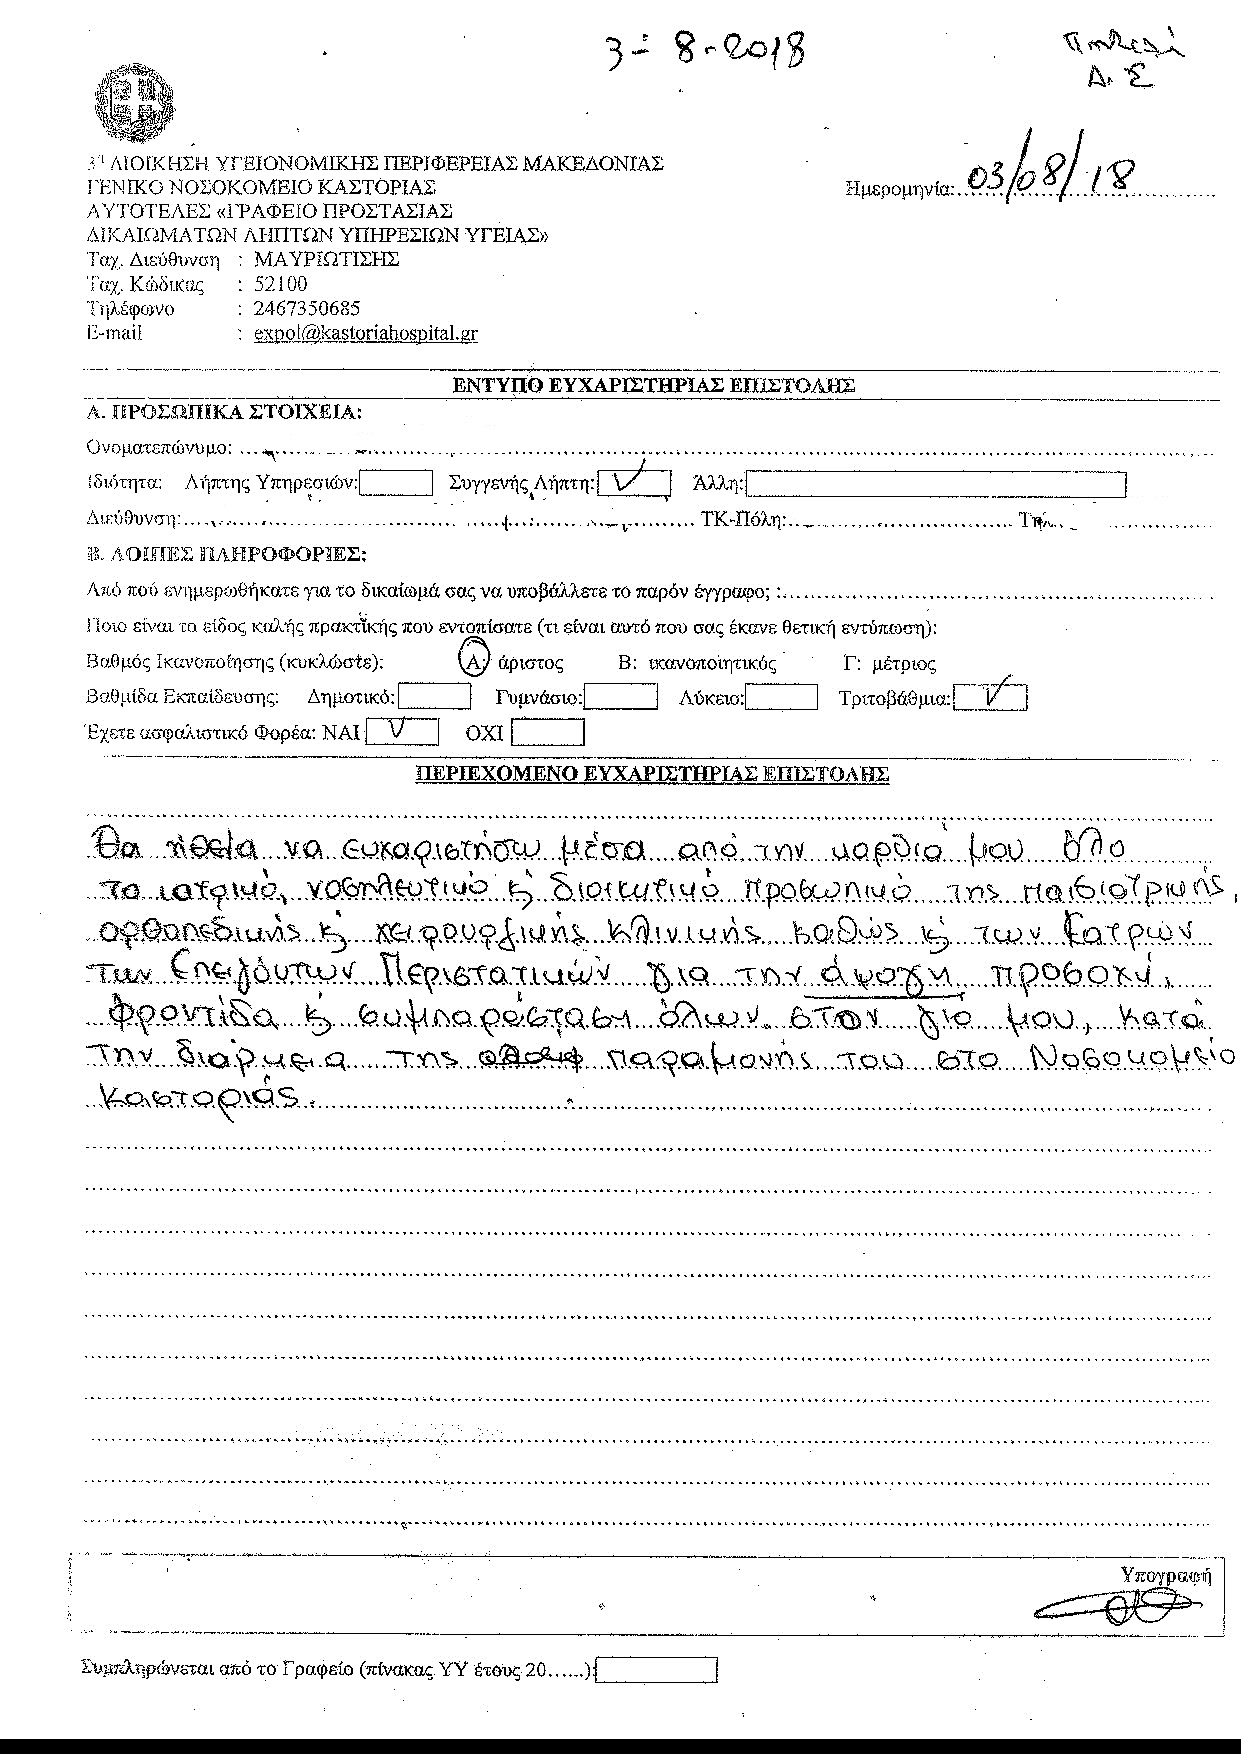 3-8-2018
Δ.Σ
3η ΔΙΟΙΚΗΣΗ ΥΓΕΙΟΝΟΜΙΚΗΣ ΠΕΡΙΦΕΡΕΙΑΣ ΜΑΚΕΔΟΝΙΑΣ
ΓΕΝΙΚΟ ΝΟΣΟΚΟΜΕΙΟ ΚΑΣΤΟΡΙΑΣ
Ημερομηνία: 03/08/18
ΑΥΤΟΤΕΛΕΣ «ΓΡΑΦΕΙΟ ΠΡΟΣΤΑΣΙΑΣ
ΔΙΚΑΙΩΜΑΤΩΝ ΛΗΠΤΩΝ ΥΠΗΡΕΣΙΩΝ ΥΓΕΙΑΣ»
Ταχ. Διεύθυνση : ΜΑΥΡΙΩΤΙΣΗΣ
Ταχ. Κώδικας : 52100
Τηλέφωνο : 2467350685
E-mail : expol@kastoriahospital.gr
ΕΝΤΥΠΟ ΕΥΧΑΡΙΣΤΗΡΙΑΣ ΕΠΙΣΤΟΛΗΣ
Α. ΠΡΟΣΩΠΙΚΑ ΣΤΟΙΧΕΙΑ:
Ονοματεπώνυμο:
Ιδιότητα: Λήπτης Υπηρεσιών: Συγγενής Λήπτη: V Άλλη:
Διεύθυνση: ΤΚ-Πόλη: Τηλ.
Β. ΛΟΙΠΕΣ ΠΛΗΡΟΦΟΡΙΕΣ:
Από πού ενημερωθήκατε για το δικαίωμά σας να υποβάλλετε το παρόν έγγραφο; :
Ποιο είναι το είδος καλής πρακτικής που εντοπίσατε (τι είναι αυτό που σας έκανε θετική εντύπωση):
Βαθμός Ικανοποίησης (κυκλώστε): Α: άριστος Β: ικανοποιητικός Γ: μέτριος
Βαθμίδα Εκπαίδευσης: Δημοτικό: Γυμνάσιο: Λύκειο: Τριτοβάθμια: V
Έχετε ασφαλιστικό Φορέα: ΝΑΙ V ΟΧΙ
ΠΕΡΙΕΧΟΜΕΝΟ ΕΥΧΑΡΙΣΤΗΡΙΑΣ ΕΠΙΣΤΟΛΗΣ
Θα ήθελα να ευχαριστήσω μέσα από την καρδιά μου όλο
το ιατρικό, νοσηλευτικό κ διοικητικό προσωπικό της παιδιατρικής,
ορθοπεδικής κ χειρουργικής κλινικής καθώς κ των Ιατρών
των Επειγόντων Περιστατικών για την άψογη προσοχή,
φροντίδα κ συμπαράσταση όλων στον γιο μου, κατά
την διάρκεια της παραμονής του στο Νοσοκομείο
Καστοριάς.
Υπογραφή
Συμπληρώνεται από το Γραφείο (πίνακας ΥΥ έτους 20......):